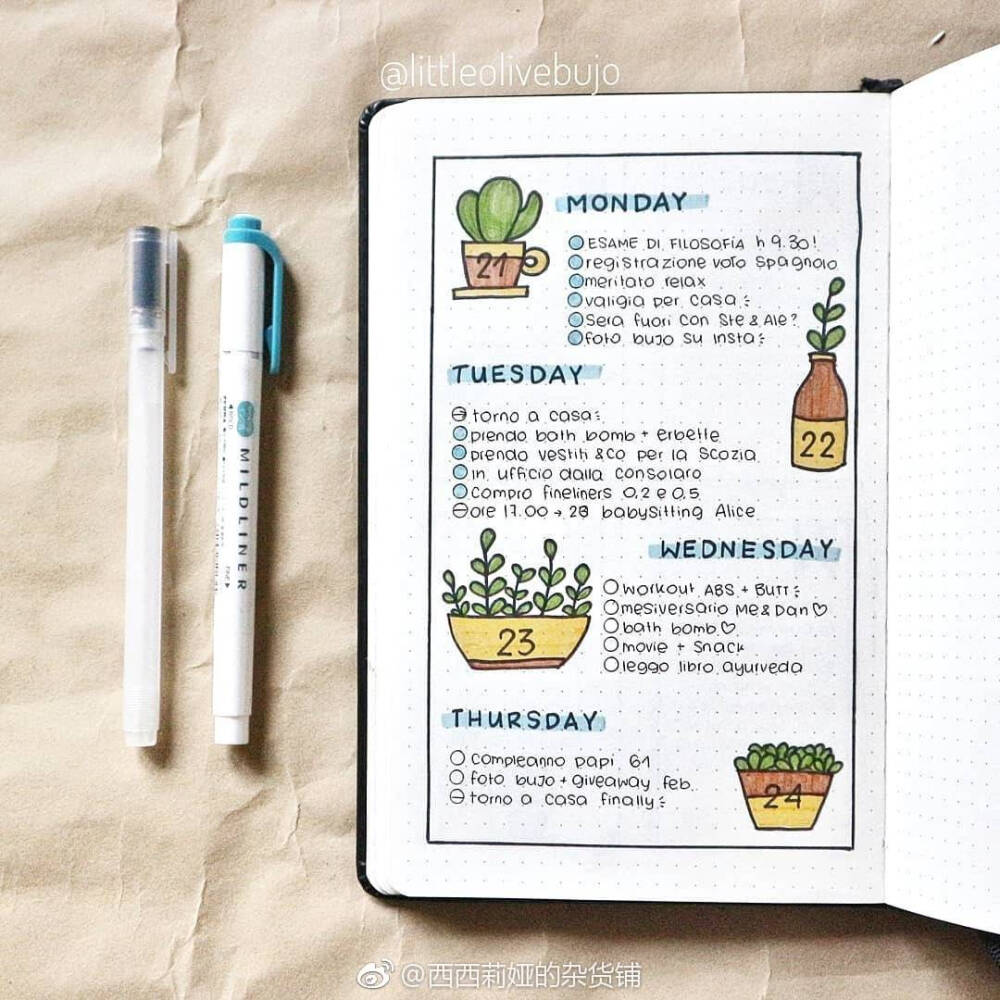 @littleolivebujo
MONDAY
21
ESAME DI FILOSOFIA h 9.30!
registrazione voto spagnolo
meritato relax
valigia per casa
sera fuori con Ste & Ale?
foto bujo su insta
TUESDAY
torno a casa
prendo bath bomb + erbette
prendo vestiti & co per la Scozia
in ufficio dalla consolaro
compro fineliners 0.2 e 0.5
ore 17.00 → 20 babysitting Alice
22
WEDNESDAY
23
workout ABS + BUTT
mesiversario Me & Dan♡
bath bomb♡
movie + snack
leggo libro ayurveda
THURSDAY
compleanno papi 61
foto bujo + giveaway feb.
torno a casa finally
24
MILDLINER
@西西莉娅的杂货铺